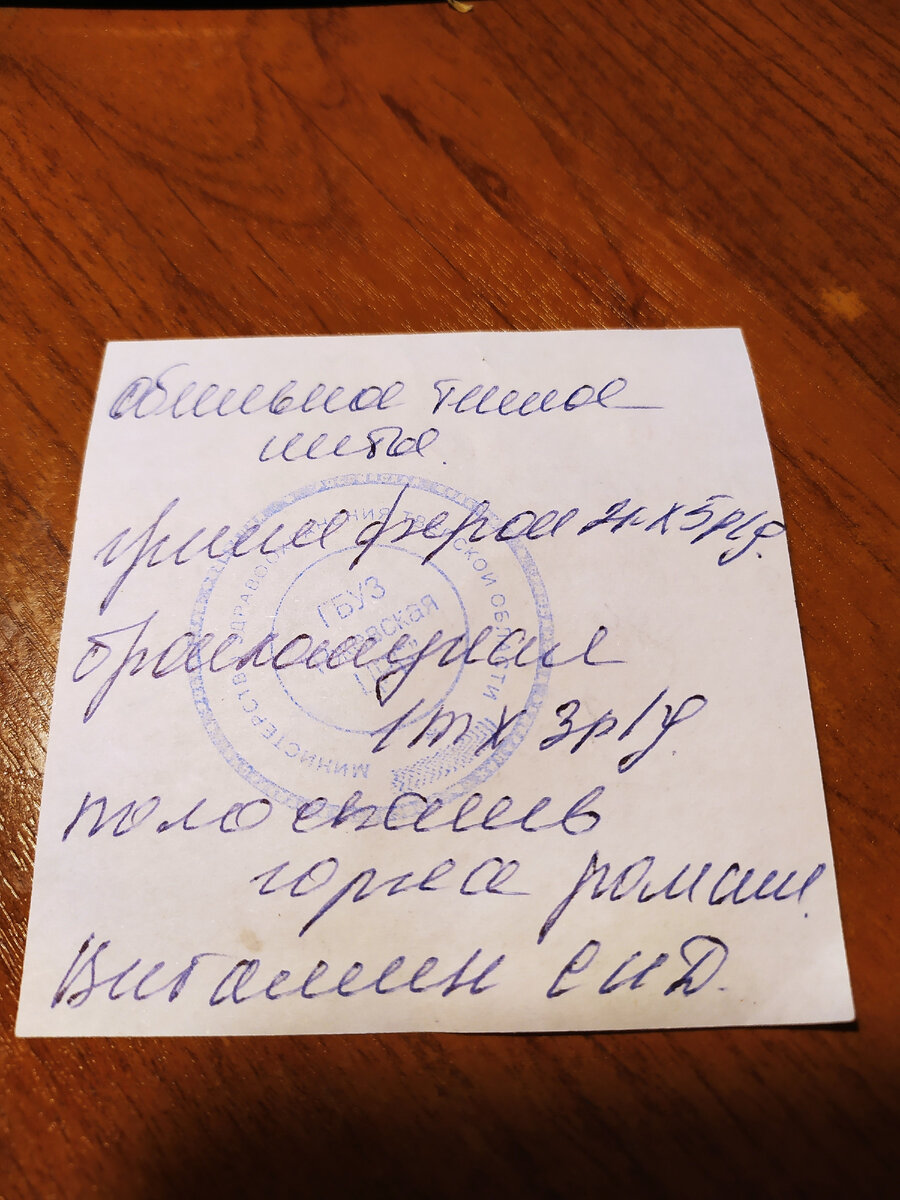 обильное тёплое
питьё.
гриппферон 2к х 5р/д.
бронхомунал
1т х 3р/д.
полоскание
горла ромашк.
Витамин С и Д.
МИНИСТЕРСТВО ЗДРАВООХРАНЕНИЯ ТВЕРСКОЙ ОБЛАСТИ
ГБУЗ